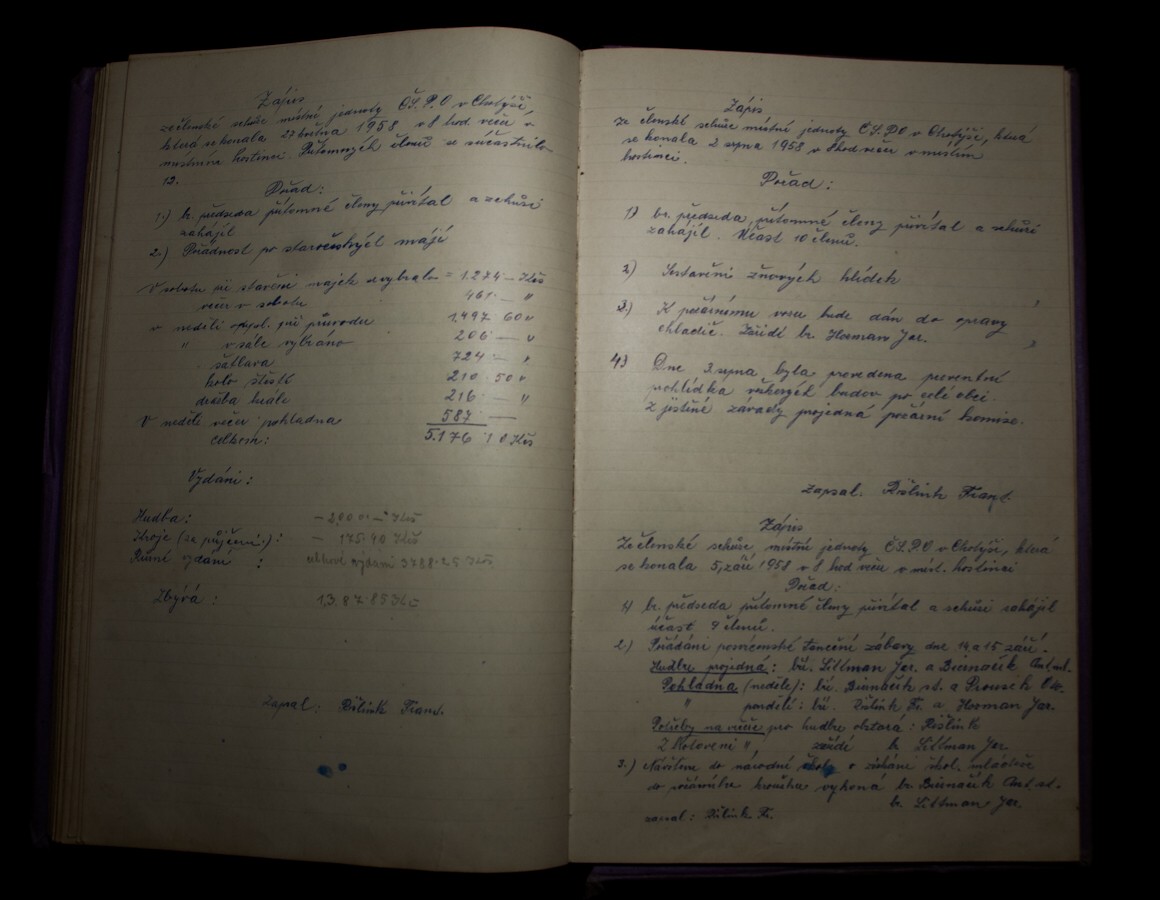 Zápis
z členské schůze místní jednoty ČS.P.O v Chotýši,
která se konala 27 května 1958 v 8 hod. večer v
místním hostinci. Přítomných členů se súčastnilo
12.
Pořad:
1.) br. předseda přítomné členy přivítal a schůzi
zahájil
2.) Přádnost po staročeských májí
V sobotu při stavění májek vybralo = 1.274 — Kčs
večer v sobotu 461 — "
v neděli odpol. při průvodu 1.497 60 "
" v sále vybráno 206 — "
šatlava 724 — "
kolo štěstí 210 50 "
dražba krále 216 — "
V neděli večer pokladna 587 —
celkem: 5.176 10 Kčs
Vydání:
Hudba: — 2000 — Kčs
Kroje (za půjčení): — 175.90 Kčs
Různé vydání : celkové vydání 3788.25 Kčs
Zbývá : 13.87.85 Kčs
Zapsal: Růlink Frant.
Zápis
Ze členské schůze místní jednoty ČS.PO v Chotýši, která
se konala 2 srpna 1958 v 8 hod večer v místním
hostinci.
Pořad:
1) br. předseda, přítomné členy přivítal a schůzi
zahájil. Účast 10 členů.
2) Sestavení žňových hlídek
3.) K požárnímu vozu bude dán do opravy
chladič. Zařídí br. Horman Jar.
4) Dne 3. srpna byla provedena preventní
prohlídka veškerých budov po celé obci.
Zjištěné závady projedná požární komise.
Zapsal. Růlink Frant.
Zápis
Ze členské schůze, místní jednoty ČS.P.O v Chotýši, která
se konala 5, září 1958 v 8 hod večer v míst. hostinci
Pořad:
1) br. předseda přítomné členy přivítal a schůzi zahájil
účast 9 členů.
2.) Pořádání posvícenské taneční zábavy dne 14 a 15 září.
Hudbu projedná: bří. Littman Jar. a Biranačík Ant. ml.
Pokladna (neděle): bří. Biranačík st. a Prousek
" pondělí: bří. Růlink Fr. a Horman Jar.
Potřeby na večer pro hudbu obstará: Růlink
Zhotovení " zařídí br. Littman Jar.
3.) Návštěvu do národní školy o získání škol. mládeže
do požárního kroužku vykoná br. Biranačík Ant. st.
br. Littman Jar.
zapsal: Růlink Fr.